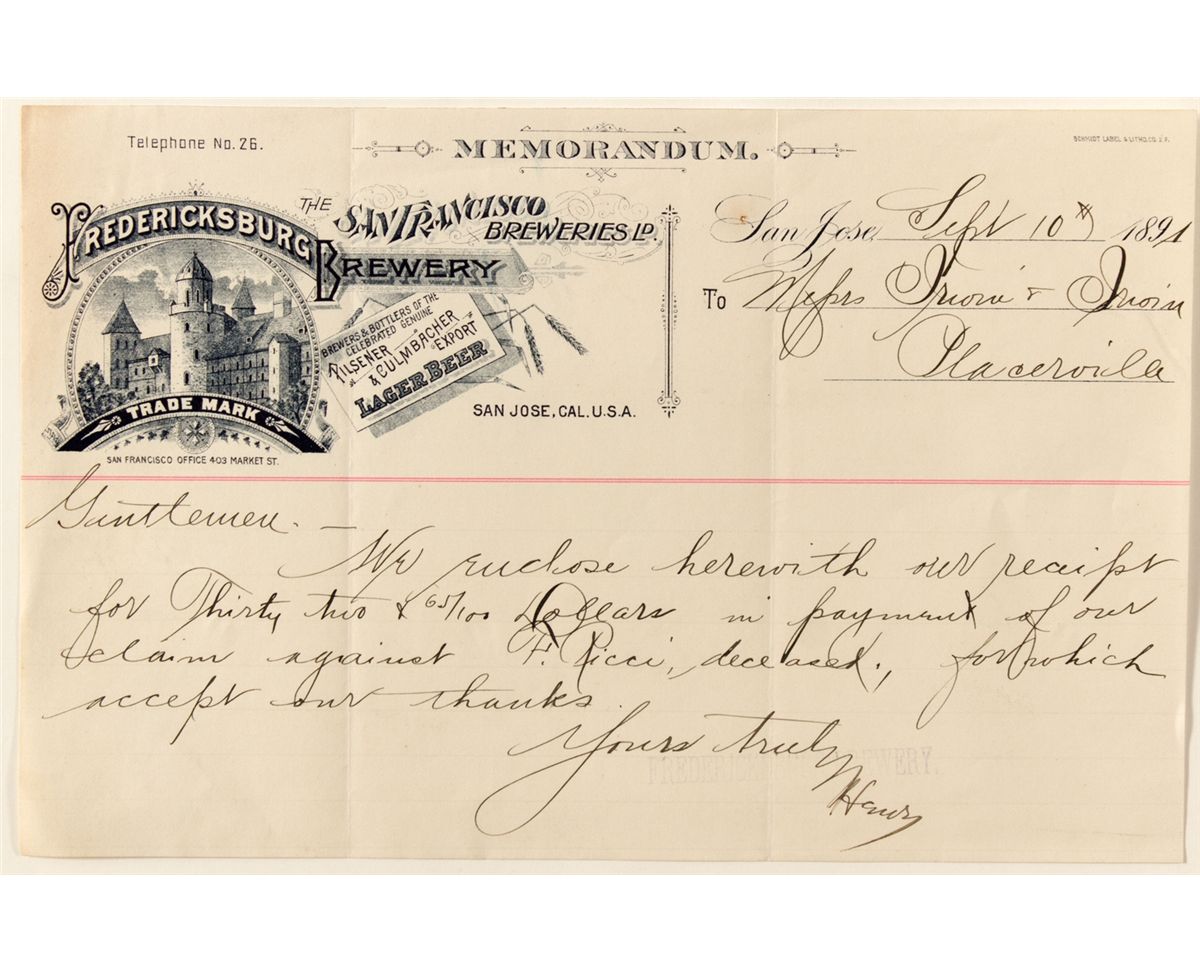 Telephone No. 26.
MEMORANDUM.
SCHMIDT LABEL & LITHO. CO. S.F.
THE SAN FRANCISCO BREWERIES LD.
FREDERICKSBURG BREWERY
BREWERS & BOTTLERS OF THE
CELEBRATED GENUINE
PILSENER
& CULMBACHER
EXPORT
LAGER BEER
TRADE MARK
SAN FRANCISCO OFFICE 403 MARKET ST.
SAN JOSE, CAL. U.S.A.
San Jose, Sept 10th 1891
To Messrs Irwin & Irwin
Placerville
Gentlemen. —
We enclose herewith our receipt
for Thirty two & 65/100 Dollars in payment of our
claim against F. Ricci, deceased., for which
accept our thanks.
Yours truly
FREDERICKSBURG BREWERY.
Henry